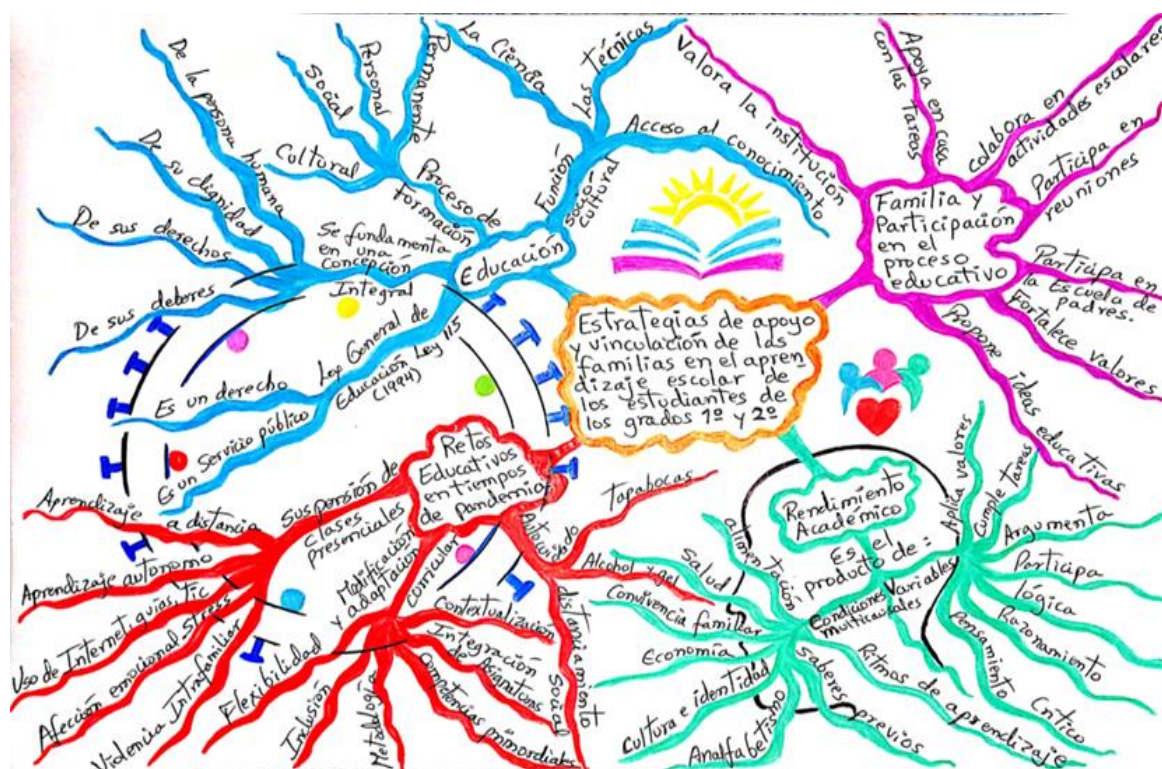 Estrategias de apoyo
y vinculación de las
familias en el apren
dizaje escolar de
los estudiantes de
los grados 1º y 2º
Educación
Función
socio
cultural
La Ciencia
Las técnicas
Acceso al conocimiento
Proceso de
Formación
Permanente
Personal
Social
Cultural
Se fundamenta
en una
Concepción
Integral
De la persona humana
De su dignidad
De sus derechos
De sus deberes
Ley General de
Educación Ley 115
(1994)
Es un derecho
Es un Servicio público
Familia y
Participación
en el
proceso
educativo
Valora la institución
Apoya en casa
con las tareas
colabora en
actividades escolares
Participa en
reuniones
Participa en
la Escuela de
padres.
Fortalece valores
Propone ideas educativas
Retos
Educativos
en tiempos
de Pandemia
Suspensión de
clases
presenciales
Aprendizaje a distancia
Aprendizaje autonomo
Uso de Internet, guías, Tic
Afección emocional, stress
Violencia Intrafamiliar
Modificación
y adaptación
curricular
Flexibilidad
Inclusión
Metodología
Competencias primordiales
Integración
de Asignaturas
Contextualización
Autocuidado
Tapabocas
Alcohol y gel
distanciamiento Social
Rendimiento
Académico
Es el
producto de:
Variables
Condiciones
multicausales
Aplica valores
Cumple tareas
Argumenta
Participa
lógica
Razonamiento
Pensamiento Crítico
Ritmos de aprendizaje
alimentación
Salud
Convivencia familiar
Economía
Cultura e identidad
Analfabetismo
Saberes previos